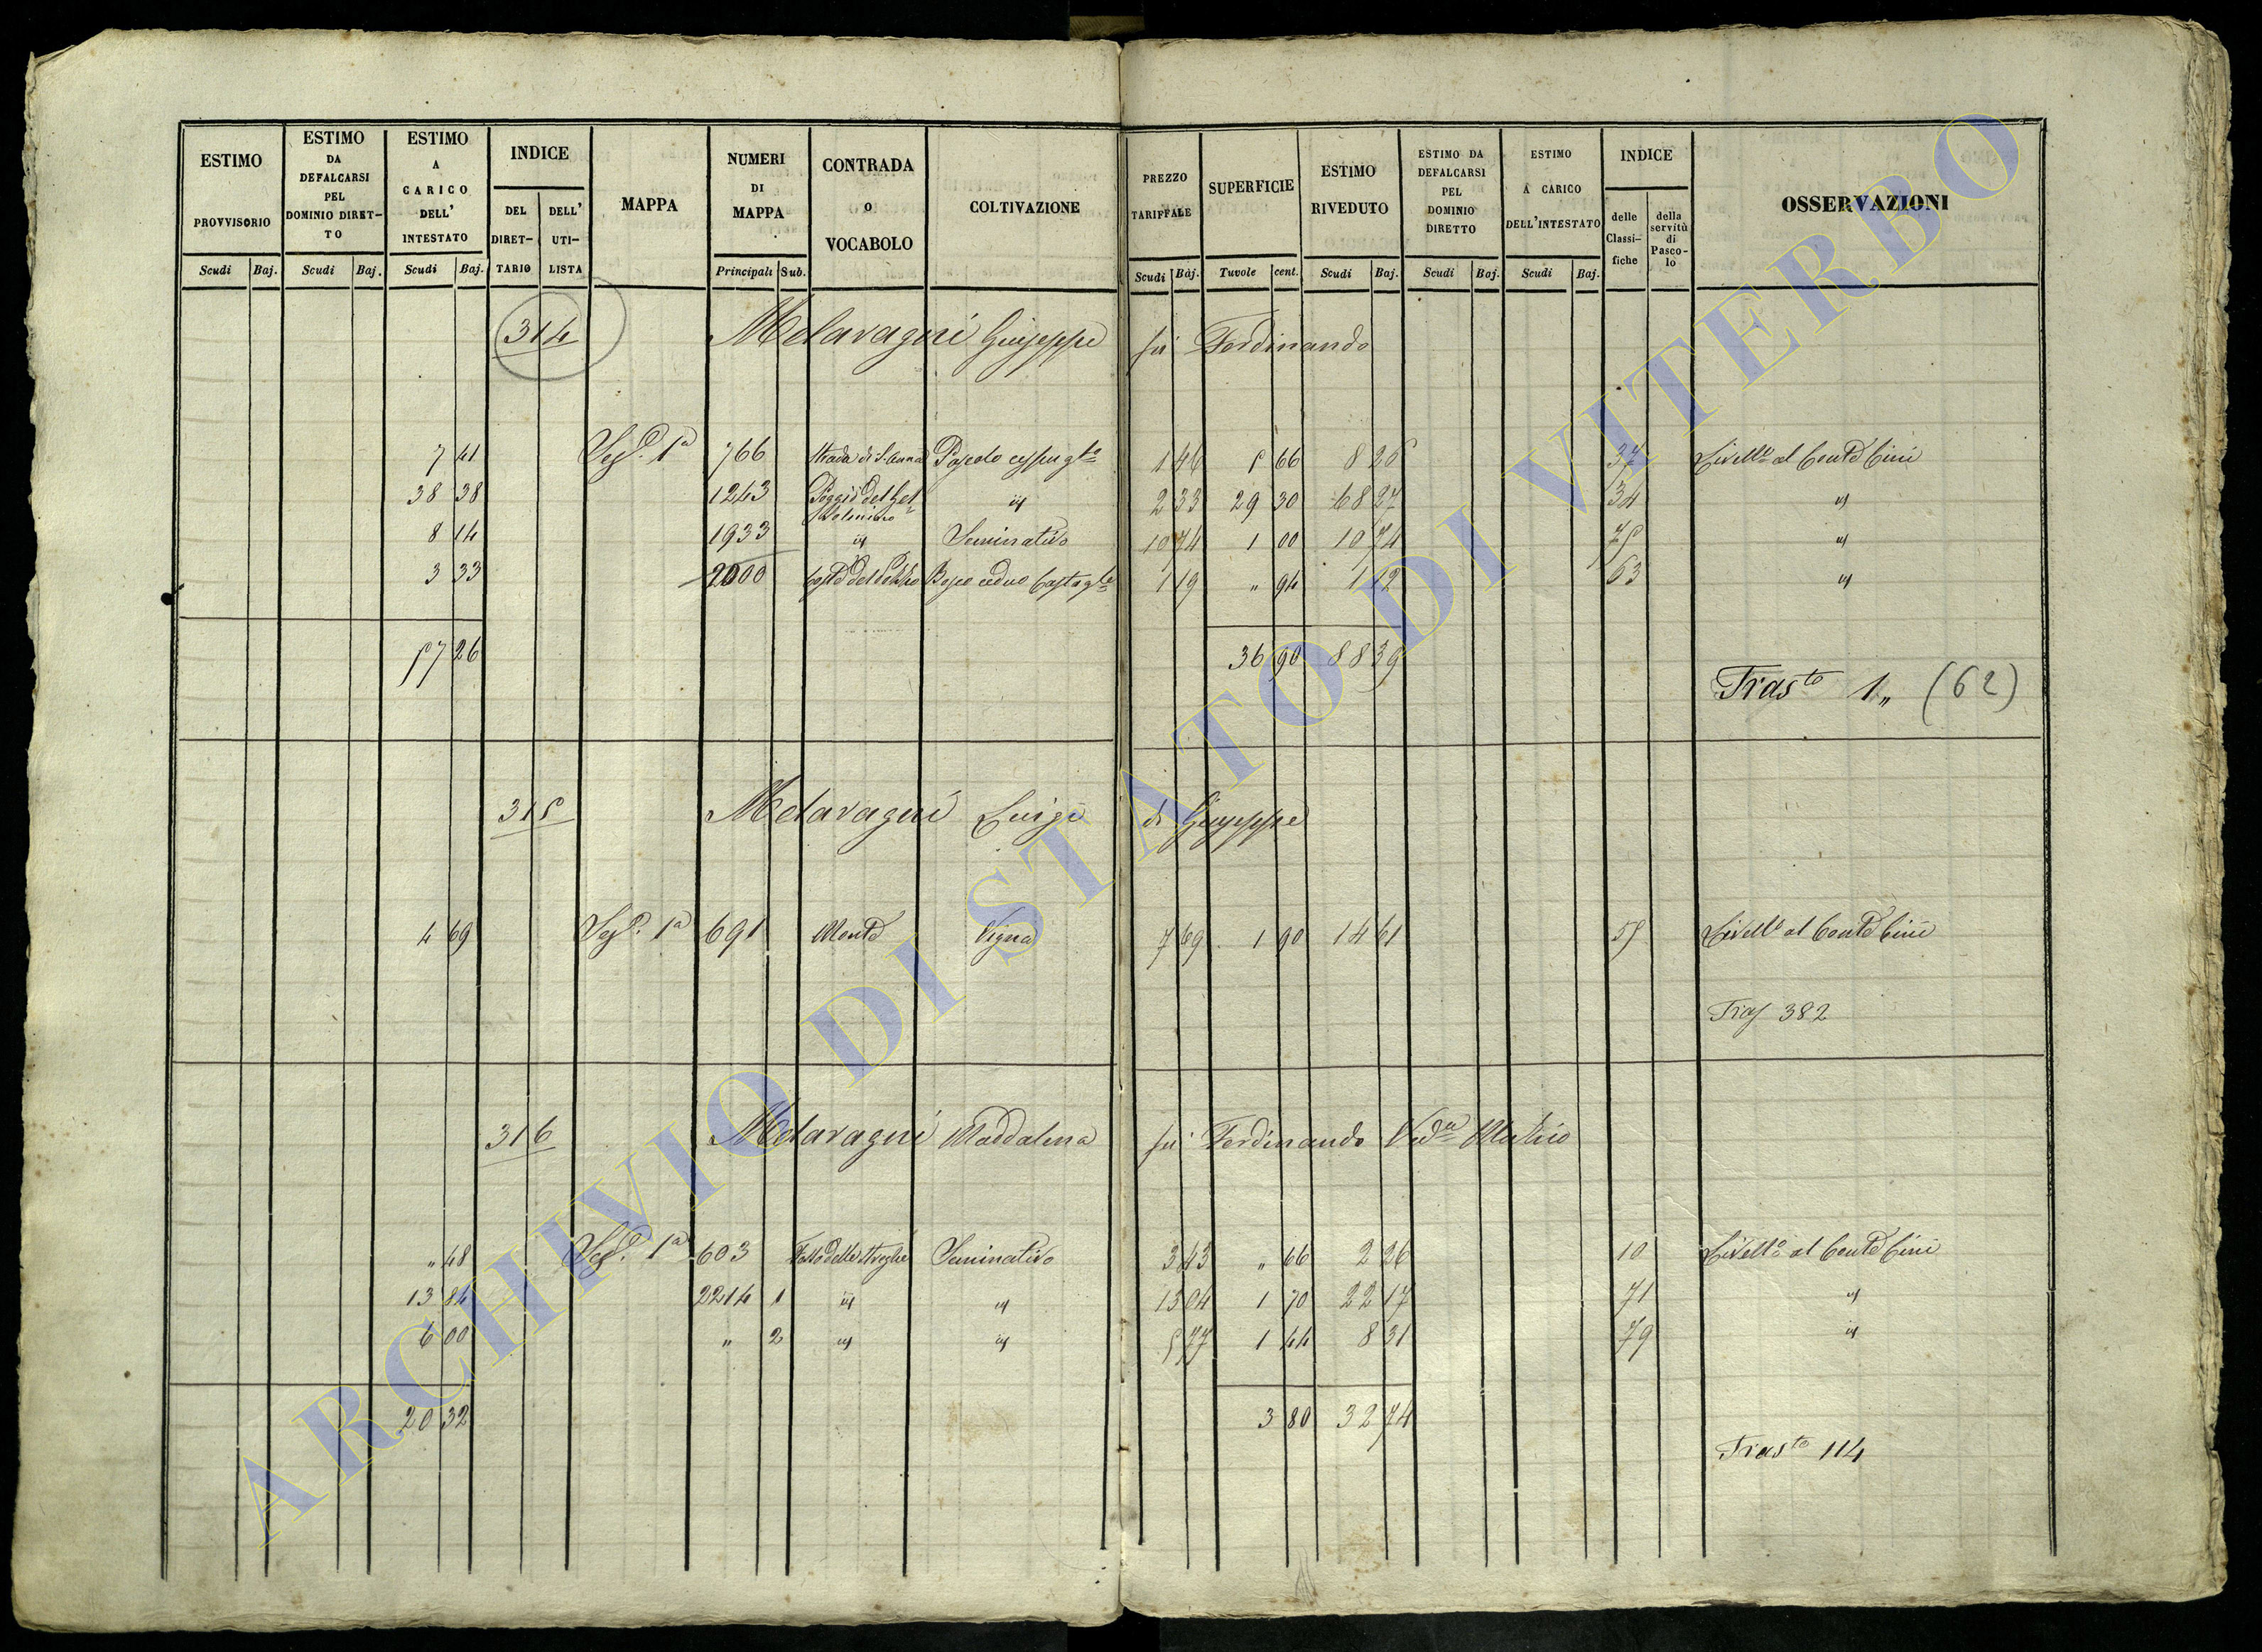 ESTIMO PROVVISORIO
ESTIMO DA DEFALCARSI PEL DOMINIO DIRET-TO
ESTIMO A CARICO DELL' INTESTATO
INDICE
DEL DIRET-TARIO
DELL' UTI-LISTA
MAPPA
NUMERI DI MAPPA
CONTRADA O VOCABOLO
COLTIVAZIONE
PREZZO TARIFFALE
SUPERFICIE
ESTIMO RIVEDUTO
ESTIMO DA DEFALCARSI PEL DOMINIO DIRETTO
ESTIMO A CARICO DELL'INTESTATO
INDICE
delle Classi-fiche
della servitù di Pasco-lo
OSSERVAZIONI
Scudi Baj. Scudi Baj. Scudi Baj. Principali Sub. Scudi Baj. Tavole cent. Scudi Baj. Scudi Baj. Scudi Baj.
314 Melaragni Giuseppe fu Ferdinando
7 41 Sez.e 1a 766 Strada di S. Anna Pascolo cespugto 1 46 5 66 8 26 37 Livello al Conte Cini
38 38 1243 Poggio del 2 33 29 30 68 27 34 "
8 14 1933 " Seminativo 10 74 1 00 10 74 75 "
3 33 2000 Bosco ceduo Castagle 1 19 " 94 1 12 63 "
57 26 36 90 88 39
Trasto 1" (62)
315 Melaragni Luigi di Giuseppe
4 69 Sez.e 1a 691 Monte Vigna 7 69 1 90 14 61 55 Livello al Conte Cini
Tras 382
316 Melaragni Maddalena fu Ferdinando Veda
" 48 Sez.e 1a 603 Fosso delle Streghe Seminativo 3 43 " 66 2 26 10 Livello al Conte Cini
13 84 2214 1 " " 13 04 1 70 22 17 71 "
6 00 " 2 " " 5 77 1 44 8 31 79 "
20 32 3 80 32 74
Trasto 114
ARCHIVIO DI STATO DI VITERBO